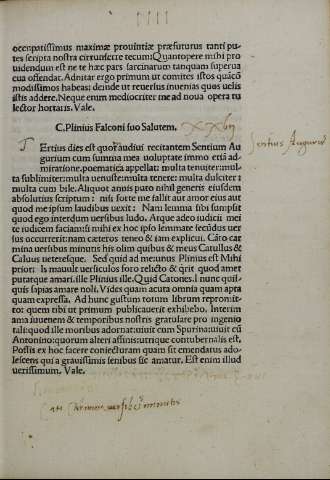 occupatissimus maximæ prouintiæ præfuturus tanti pu-
tes scripta nostra circunferre tecum: Quantopere mihi pro
uidendum est ne te hæc pars sarcinarum tanquam superua
cua offendat. Adnitar ergo primum ut comites istos quàcō
modissimos habeas: deinde ut reuersus inuenias quos uelis
istis addere. Neque enim mediocriter me ad noua opera tu
lector hortaris. Vale.
C. Plinius Falconi suo Salutem.
TErtius dies est quod audiui recitantem Sentium Au
gurium cum summa mea uoluptate immo etiā ad-
miratione. poematica appellat: multa tenuiter: mul-
ta sublimiter: multa uenuste: multa tenere: multa dulciter:
multa cum bile. Aliquot annis puto nihil generis eiusdem
absolutius scriptum: nisi forte me fallit aut amor eius aut
quod me ipsum laudibus uexit: Nam lemma sibi sumpsit
quod ego interdum uersibus ludo. Atque adeo iudicii mei
te iudicem faciam: si mihi ex hoc ipso lemmate secūdus uer
sus occurrerit: nam cæteros teneo & iam explicui. Cāto car
mina uersibus minutis his olim quibus & meus Catullus &
Caluus ueteresque. Sed quid ad me: unus Plinius est Mihi
prior: Is mauult uersiculos foro relicto & qrit quod amet
putatque amari. ille Plinius ille. Quid Catones. I nunc quis-
quis sapias amare noli. Vides quam acuta omnia quam apta
quam expressa. Ad hunc gustum totum librum repromit-
to: quem tibi ut primum publicauerit exhibebo. Interim
ama iuuenem & temporibus nostris gratulare pro ingenio
tali: quod ille moribus adornat: uiuit cum Spurina: uiuit cū
Antonino: quorum alteri affinis: utrique contubernalis est.
Possis ex hoc facere coniecturam quam sit emendatus ado-
lescens qui a grauissimis senibus sic amatur. Est enim illud
uerissimum. Vale.